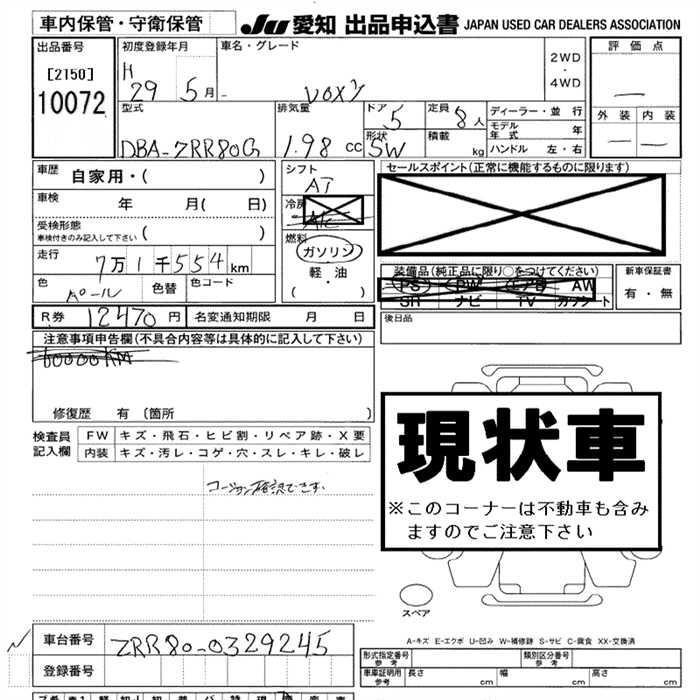 車内保管・守衛保管
JU 愛知 出品申込書 JAPAN USED CAR DEALERS ASSOCIATION
出品番号
[2150]
10072
初度登録年月
H
29 5月
車名・グレード
VOXY
2WD
・
4WD
評価点
外装 内装
型式
DBA-ZRR80G
排気量
1.98 cc
ドア
5
形状
SW
定員
8人
積載
kg
ディーラー・並行
モデル年式 年
ハンドル 左・右
車歴
自家用・( )
車検
年 月( 日)
受検形態
車検付きのみ記入して下さい ( )
走行
7万1千554km
色
パール
色替
色コード
シフト
AT
冷房
A/C
燃料
ガソリン
軽・油
( )
セールスポイント(正常に機能するものに限ります)
装備品(純正品に限り○をつけてください)
PS PW エアB AW
SR ナビ TV カワシート
新車保証書
有・無
R券 12470円 名変通知期限 月 日
後日品
注意事項申告欄(不具合内容等は具体的に記入して下さい)
60000KM
修復歴 有 〔箇所 〕
検査員
記入欄
FW キズ・飛石・ヒビ割・リペア跡・X要
内装 キズ・汚レ・コゲ・穴・スレ・キレ・破レ
コーション確認できず.
現状車
※このコーナーは不動車も含み
ますのでご注意下さい
スペア
A-キズ E-エクボ U-凹み W-補修跡 S-サビ C-腐食 XX-交換済
車台番号 ZRR80-0329245
登録番号
形式指定番号
参考
類別区分番号
参考
車庫証明用
参考
長さ cm 幅 cm 高さ cm